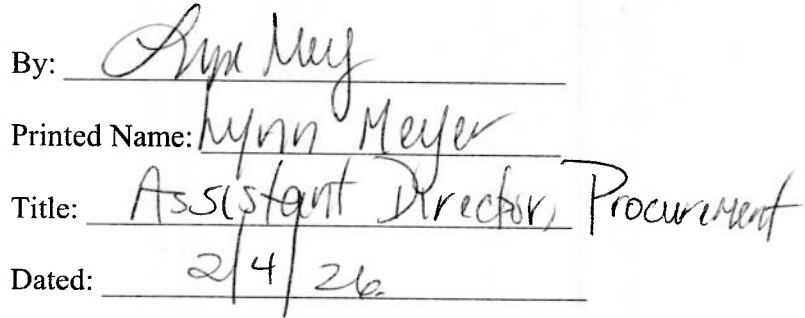 By: Lynn Mey
Printed Name: Lynn Meyer
Title: Assistant Director, Procurement
Dated: 2/4/26